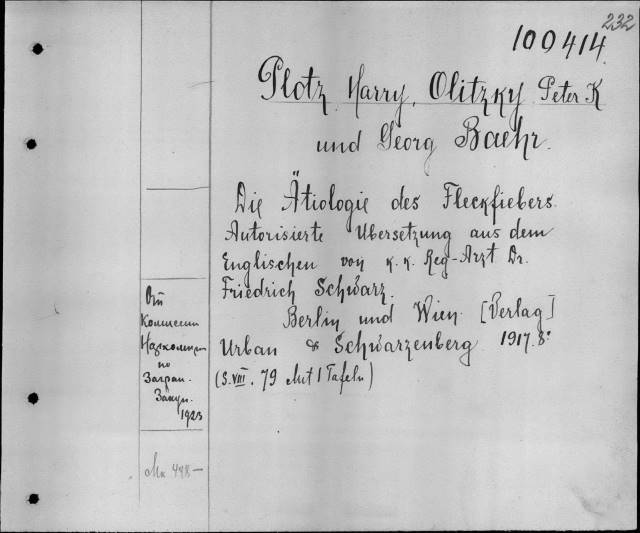 232
100414.
Plotz, Harry, Olitzky Peter K
und Georg Baehr.
Die Ätiologie des Fleckfiebers.
Autorisierte Übersetzung aus dem
Englischen von k. k. Reg-Arzt Dr.
Friedrich Schwarz.
Berlin und Wien. [Verlag]
Urban & Schwarzenberg 1917. 8°
(S. VIII. 79 Mit 1 Tafeln)
От
Комиссии
по
Загран.
Закуп.
1923